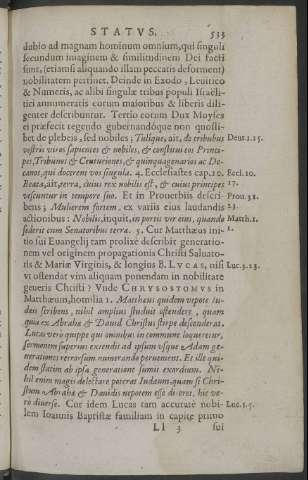 STATVS. 533
dubio ad magnam hominum omnium, qui singuli
secundum imaginem & similitudinem Dei facti
sunt, (etiamsi aliquando illam peccatis deforment)
nobilitatem pertinet. Deinde in Exodo, Leuitico
& Numeris, ac alibi singulæ tribus populi Israëli-
tici annumeratis eorum maioribus & liberis dili-
genter describuntur. Tertio eorum Dux Moyses
ei præfecit regendo gubernandóque non quosli-
bet de plebeis, sed nobiles; Tulique, ait, de tribubus Deut.1.15.
vestris viros sapientes & nobiles, & constitui eos Princi-
pes, Tribunos & Centuriones, & quinquagenarios ac De-
canos, qui docerent vos singula. 4. Ecclesiastes cap.10. Eccl.10.
Beata, ait, terra, cuius rex nobilis est, & cuius principes 17.
vescuntur in tempore suo. Et in Prouerbiis descri- Prou.31.
bens Mulierem fortem, ex variis eius laudandis 23.
actionibus: Nobilis, inquit, in portis vir eius, quando Matth.1.
sederit cum Senatoribus terræ. 5. Cur Matthæus ini- 1.
tio sui Euangelij tam prolixè describit generatio-
nem vel originem propagationis Christi Saluato-
ris & Mariæ Virginis, & longius B. LVCAS, nisi Luc.3.23.
vt ostendat vim aliquam ponendam in nobilitate
generis Christi? Vnde CHRYSOSTOMVS in
Matthæum, homilia 1. Matthæus quidem vtpote Iu-
deis scribens, nihil amplius studuit ostendere, quàm
quia ex Abraha & Dauid Christus stirpe descenderat.
Lucas verò quippe qui omnibus in commune loqueretur,
sermonem superius extendit ad ipsum vsque Adam ge-
nerationes retrorsum numerando perueniens. Et ille qui-
dem statim ab ipsa generatione sumit exordium. Ni-
hil enim magis delectare poterat Iudæum, quàm si Chri-
stum Abrahæ & Dauidis nepotem esse didicerit, hic ve-
rò diuersè. Cur idem Lucas tam accuratè nobi- Luc.1.5.
lem Ioannis Baptistæ familiam in capite primo
Ll 3 sui